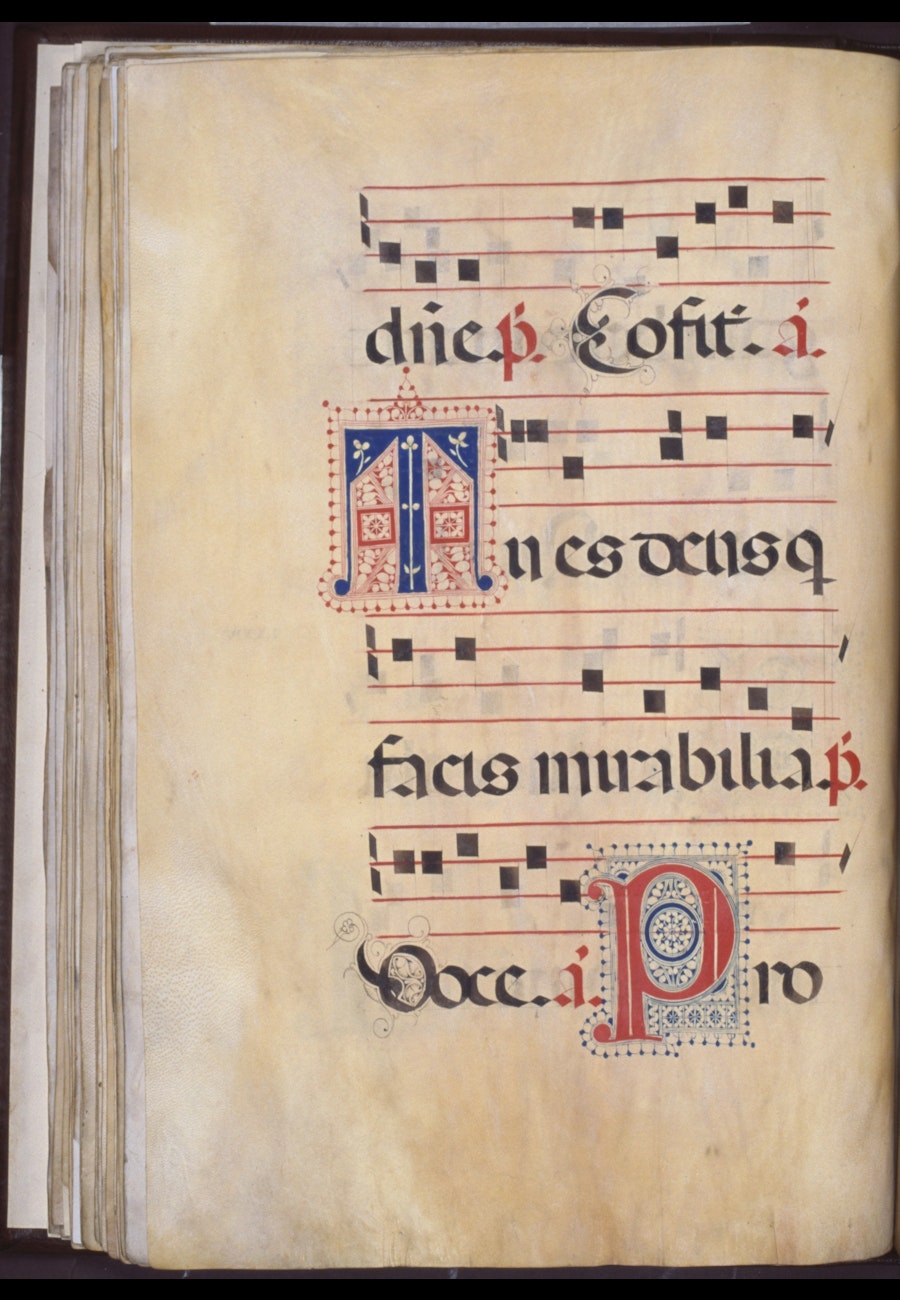 dñe. p̄. Cofit̄. á.
Tu es deus q
facis mirabilia. p̄.
Voce. á. Pro